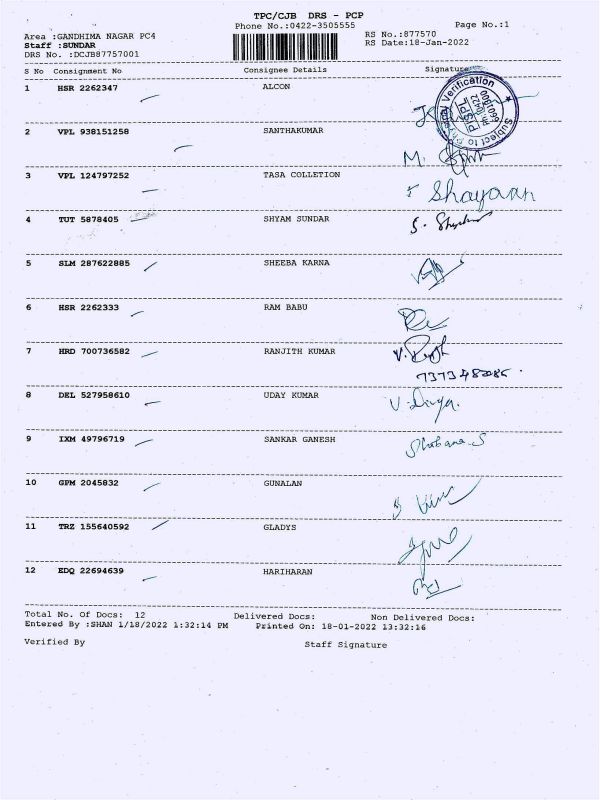 TPC/CJB DRS - PCP
Phone No.:0422-3505555 Page No.:1
Area :GANDHIMA NAGAR PC4 RS No.:877570
Staff :SUNDAR RS Date:18-Jan-2022
DRS No. :DCJB87757001
S No Consignment No Consignee Details Signature
1 HSR 2262347 ALCON
Subject to Physical Verification
PISPL
2 VPL 938151258 SANTHAKUMAR
3 VPL 124797252 TASA COLLETION
Shayaan
4 TUT 5878405 SHYAM SUNDAR
5 SLM 287622885 SHEEBA KARNA
6 HSR 2262333 RAM BABU
7 HRD 700736582 RANJITH KUMAR
8 DEL 527958610 UDAY KUMAR V. Divya.
9 IXM 49796719 SANKAR GANESH Shobana.S
10 GPM 2045832 GUNALAN
11 TRZ 155640592 GLADYS
12 EDQ 22694639 HARIHARAN
Total No. Of Docs: 12 Delivered Docs: Non Delivered Docs:
Entered By :SHAN 1/18/2022 1:32:14 PM Printed On: 18-01-2022 13:32:16
Verified By Staff Signature